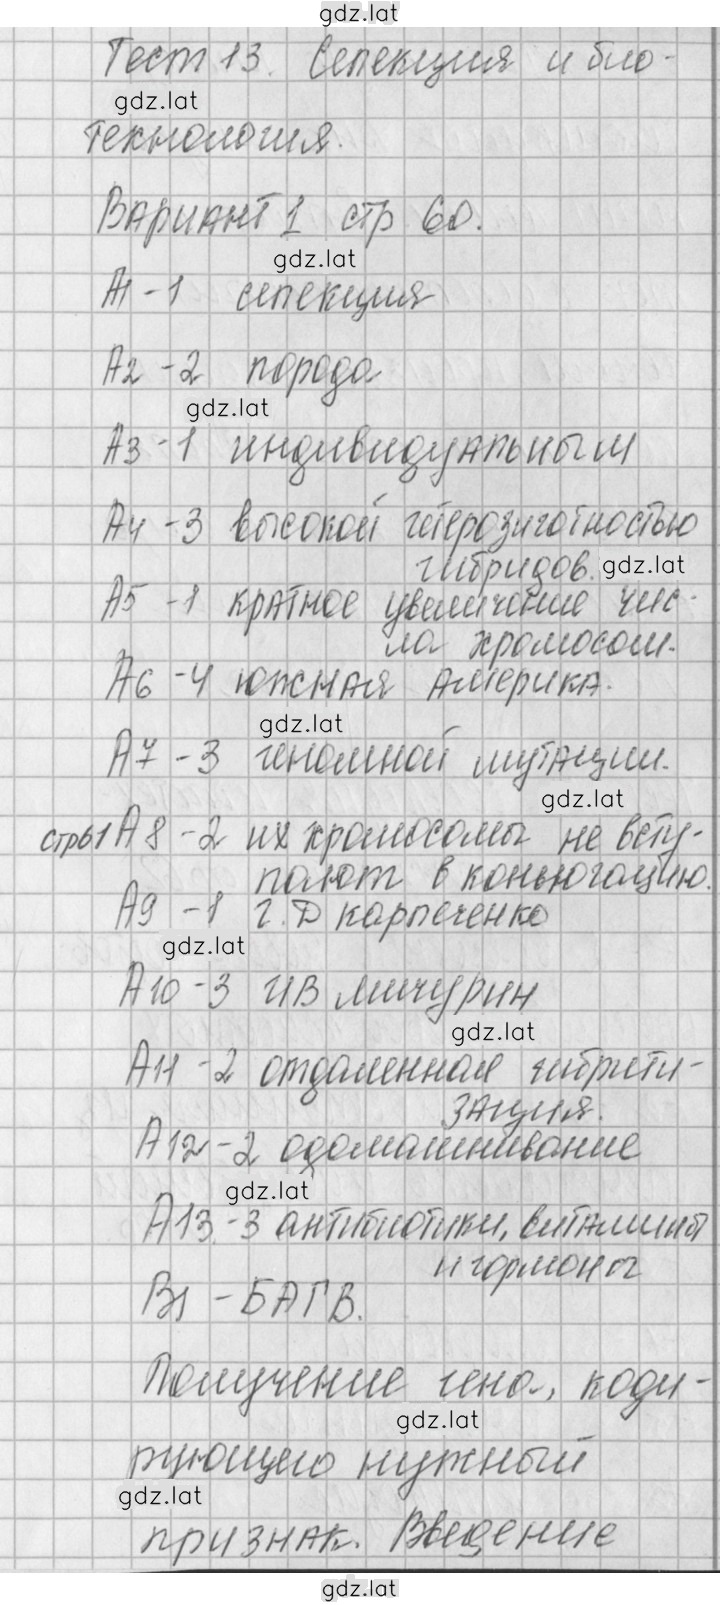 gdz.lat
Тест 13. Селекция и био-
gdz.lat
технология.
Вариант 1 стр 60.
gdz.lat
А1 - 1 селекция
А2 - 2 порода
gdz.lat
А3 - 1 индивидуальным
А4 - 3 высокой гетерозиготностью
гибридов. gdz.lat
А5 - 1 кратное увеличение чис-
ла хромосом.
А6 - 4 южная америка.
gdz.lat
А7 - 3 геномной мутации.
gdz.lat
стр61 А8 - 2 их хромосомы не всту-
пают в коньюгацию.
А9 - 1 Г.Д карпеченко
gdz.lat
А10 - 3 ИВ мичурин
gdz.lat
А11 - 2 отдаленная гибрити-
зация.
А12 - 2 одомашнивание
gdz.lat
А13 - 3 антибиотики, витамины
и гормоны
В1 - БАГВ.
Получение гена, коди-
gdz.lat
рующего нужный
gdz.lat
признак. Введение
gdz.lat